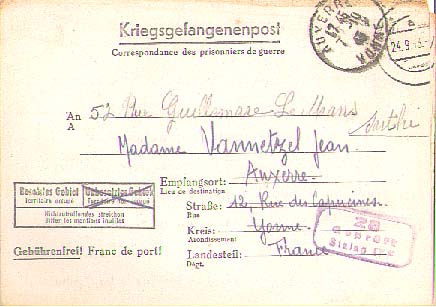 Kriegsgefangenenpost
Correspondance des prisonniers de guerre
AUXERRE
YONNE
24.9
An 52 Rue Guillemare Le Mans
A
Sarthe
Madame Vannetzel Jean
Auxerre
Empfangsort:
Lieu de destination
Straße: 12, Rue des Capucines
Rue
Kreis: Yonne
Arrondissement
Landesteil: France
Dépt.
Besetztes Gebiet
territoire occupé
Unbesetztes Gebiet
territoire non occupé
Nichtzutreffendes streichen
Biffer les mentions inutiles
Gebührenfrei! Franc de port!
Geprüft
Stalag